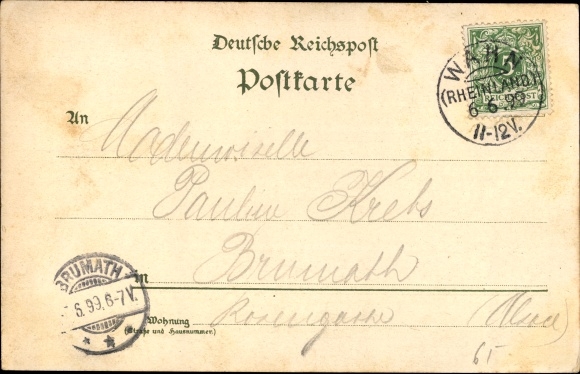 Deutsche Reichspost
Postkarte
WAHN
(RHEINLAND)
6 6.99
11-12V.
5
REICHSPOST
An
Mademoiselle
Pauline Krebs
Brumath
in
BRUMATH
6.99.6-7V.
Wohnung
(Straße und Hausnummer)
Rosengasse (Alsace)
65